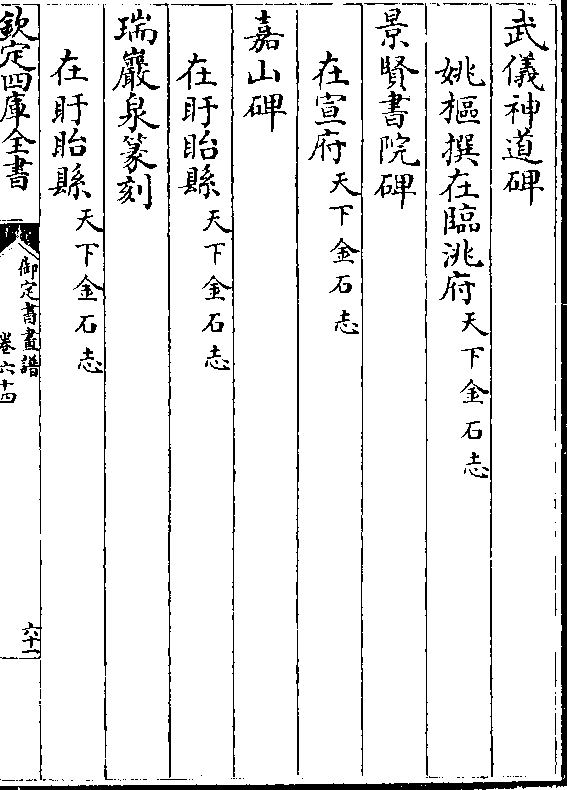 武儀神道碑
姚樞撰在臨洮府天下金石志
景賢書院碑
在宣府天下金石志
嘉山碑
在盱眙縣天下金石志
瑞巖泉篆刻
在盱眙縣天下金石志
欽定四庫全書
御定書畫譜
卷六十四
六十一